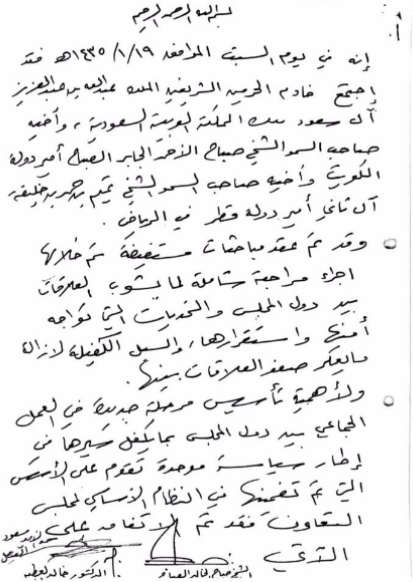 بسم الله الرحمن الرحيم
إنه في يوم السبت الموافق ١٤٣٥/١/١٩هـ فقد
اجتمع خادم الحرمين الشريفين الملك عبدالله بن عبدالعزيز
آل سعود ملك المملكة العربية السعودية، وأخيه
صاحب السمو الشيخ صباح الأحمد الجابر الصباح أمير دولة
الكويت وأخيه صاحب السمو الشيخ تميم بن حمد بن خليفة
آل ثاني أمير دولة قطر في الرياض.
وقد تم عقد مباحثات مستفيضة تم خلالها
اجراء مراجعة شاملة لما يشوب العلاقات
بين دول المجلس والتحديات التي تواجه
أمنها واستقرارها، والسبل الكفيلة لازالة
مايعكر صفو العلاقات بينها.
ولأهمية تأسيس مرحلة جديدة في العمل
الجماعي بين دول المجلس بما يكفل سيرها في
إطار سياسة موحدة تقوم على الأسس
التي تم تضمينها في النظام الأساسي لمجلس
التعاون فقد تم الاتفاق على
الآتي
الدكتور خالد العطية